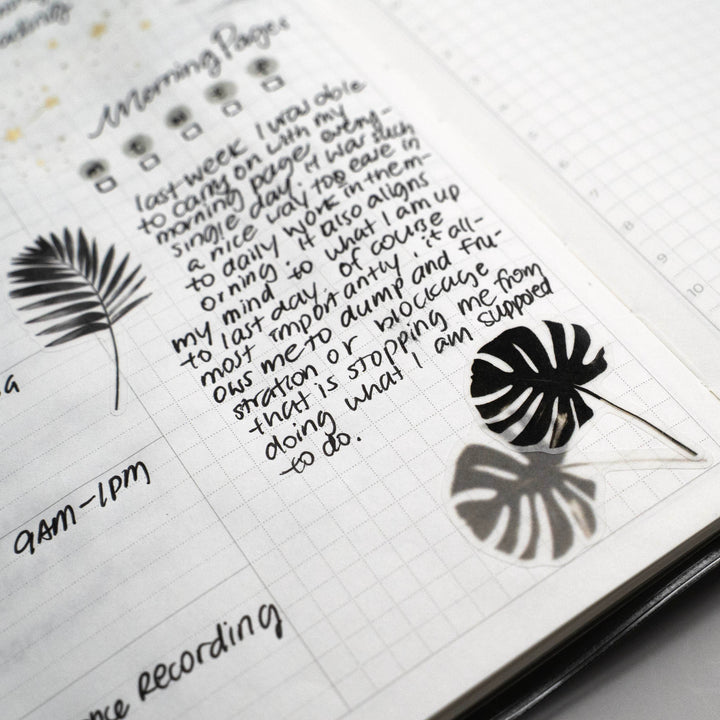 Morning Pages
m t w t f
last week I was able
to carry on with my
morning page every-
single day. it was such
a nice way too ease in
to daily work in them-
orning. it also aligns
my mind to what I am up
to last day. of course
most importantly, it all-
ows me to dump and fru-
stration or blockage
that is stopping me from
doing what I am supposed
to do.
9AM-1PM
Recording
7
8
9
10